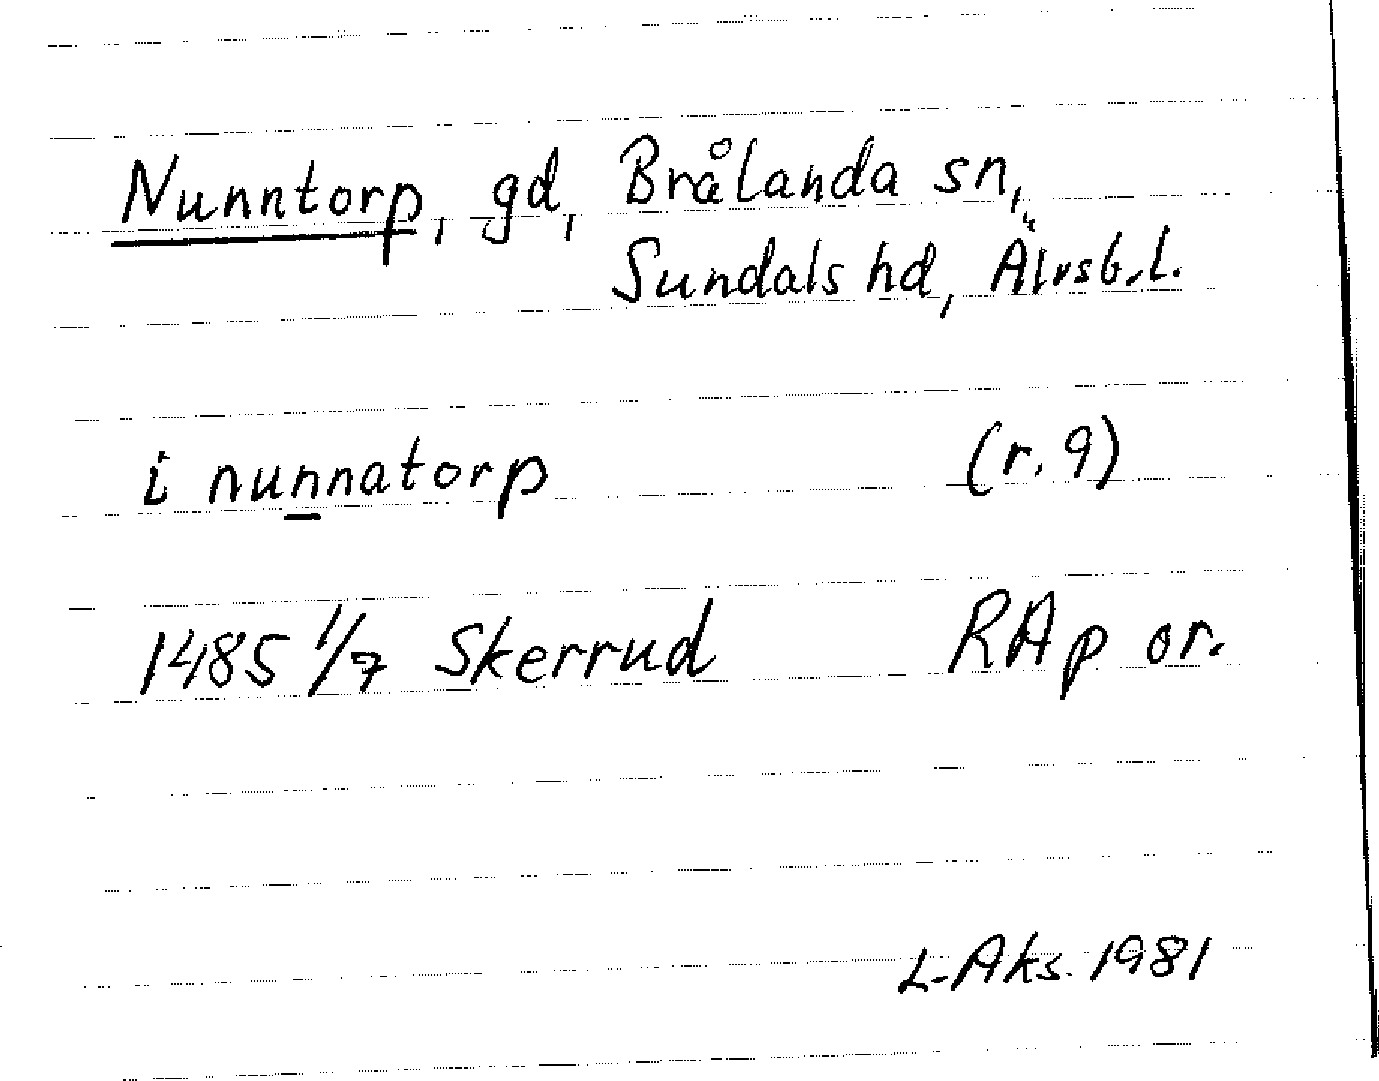 Nunntorp, gd, Brålanda sn,
Sundals hd, Älvsb.l.
i nunnatorp (r. 9)
1485 1/7 Skerrud RAp or.
L-Aks. 1981